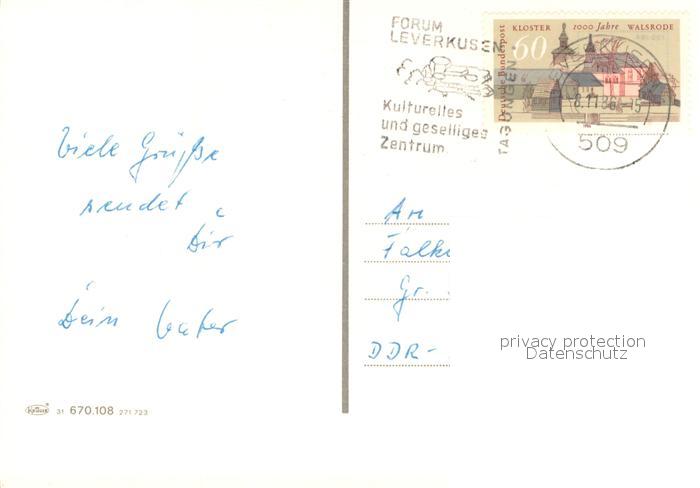 FORUM
LEVERKUSEN
Kulturelles
und geselliges
Zentrum
TAGUNGEN
Deutsche Bundespost
KLOSTER 1000 Jahre WALSRODE
60
8.11.86-15
509
Viele Grüße
sendet
Dir
Dein Vater
An
Falke
Gr.
DDR-
privacy protection
Datenschutz
Krüger
31 670.108 271 723